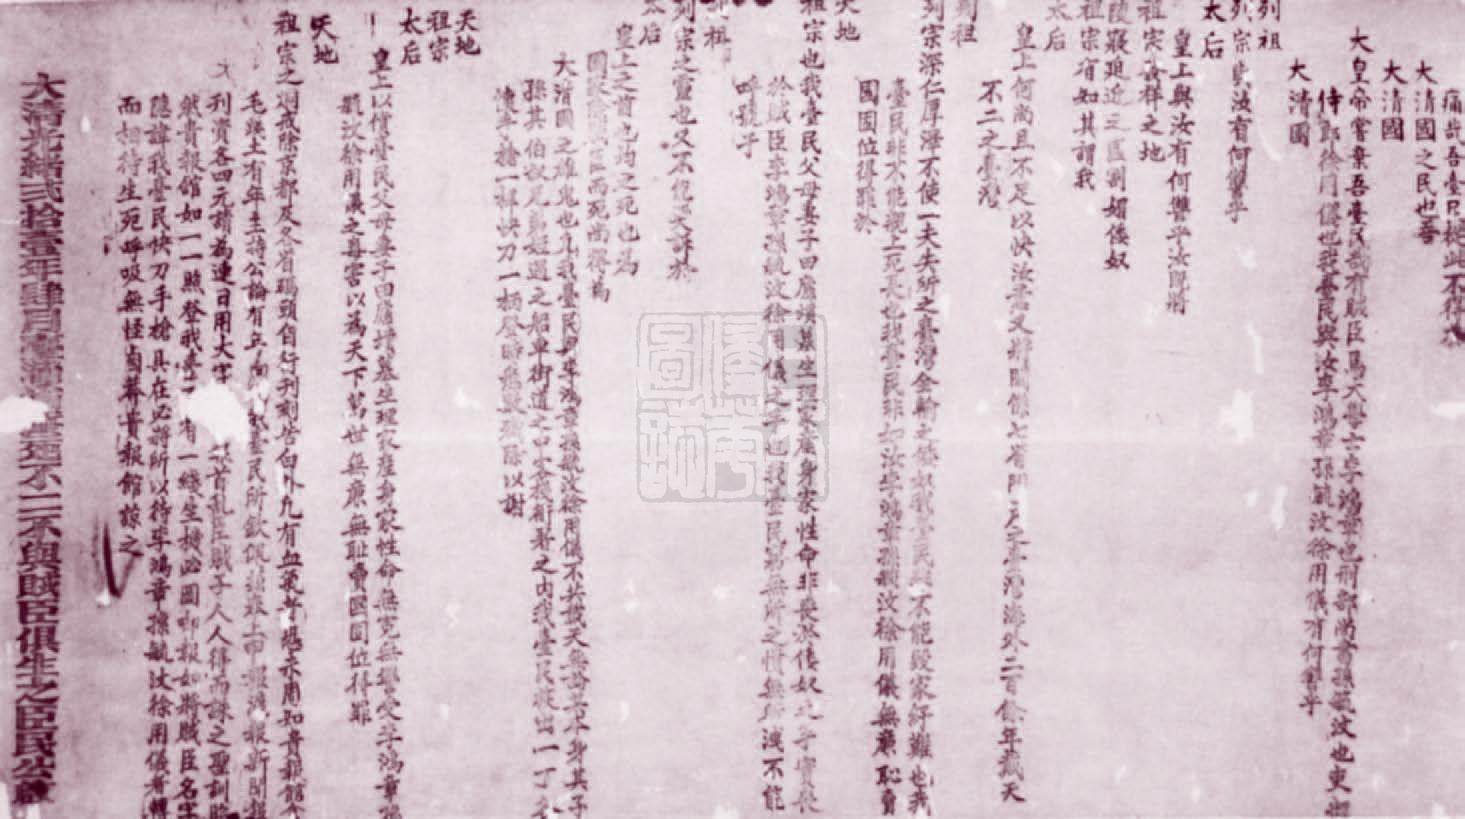 痛哉吾臺民從此不得為
大清國之民也吾
大清國
大皇帝嘗棄吾臺民哉有賊臣焉大學士李鴻章也刑部尚書孫毓汶也吏部
侍郎徐用儀也我臺民與汝李鴻章孫毓汶徐用儀有何讐乎
大清國
列祖
列宗與汝有何讐乎
太后
皇上與汝有何讐乎汝既將
祖宗發祥之地
陵寢迫近之區割媚倭奴
祖宗有知其謂我
太后
皇上何尚且不足以快汝意又將關係七省門戶之臺灣海外二百餘年戴天
不二之臺灣
列祖
列宗深仁厚澤不使一夫失所之臺灣全輸之倭奴我臺民非不能毀家紓難也我
臺民非不能親上死長也我臺民非如汝李鴻章孫毓汶徐用儀無廉恥賣
國固位得罪於
天地
祖宗也我臺民父母妻子田廬墳墓生理家產身家性命非喪於倭奴之手實喪
於賊臣李鴻章孫毓汶徐用儀之手也我臺民窮無所之憤無所洩不能
呼號于
列祖
列宗之靈也又不能哭訴於
太后
皇上之前也均之死也為
國家除賊臣而死尚得為
大清國之雄鬼也我臺民與李鴻章孫毓汶徐用儀不共戴天無論其本身其子
孫其伯叔兄弟姪遇之船車街道之中客棧衙署之內我臺民族出一丁各
懷手槍一桿快刀一柄登時悉數殲除以謝
天地
祖宗
太后
皇上以償臺民父母妻子田廬墳墓生理家產身家性命無冤無讐受李鴻章孫
毓汶徐用儀之毒害以為天下萬世無廉無恥賣國固位得罪
天地
祖宗之炯戒除京都及各省碼頭自行刊刻告白外凡有血氣者咸未用知貴報館食
毛踐土有年主持公論有年
列資各四元請為連日用大字
首亂臣賊子人人得而誅之聖訓昭
然貴報館如一一照登我臺一有一綫生機必圖啣報如將賊臣名字
隱諱我臺民快刀手槍具在必將所以待李鴻章孫毓汶徐用儀者轉
而相待生死呼吸無怪鹵莽貴報館諒之
大清光緒貳拾壹年肆月臺灣
不二不與賊臣俱生之臣民公啟